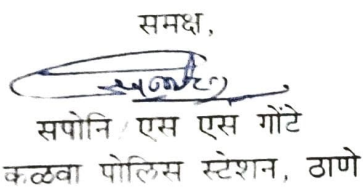 समक्ष,
सपोनि एस एस गोंटे
कळवा पोलिस स्टेशन, ठाणे